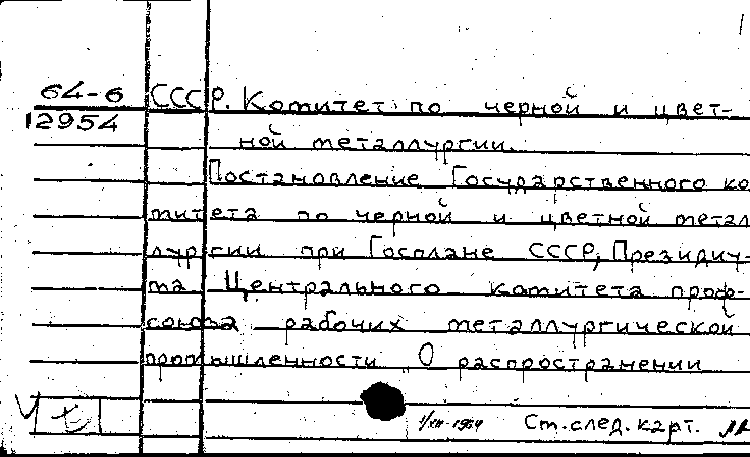 64-6
12954
СССР. Комитет по черной и цвет-
ной металлургии.
Постановление Государственного ко
митета по черной и цветной метал
лургии при Госплане СССР, Президиу-
ма Центрального комитета проф-
союза рабочих металлургической
промышленности „О распространении
Ст. след. карт.